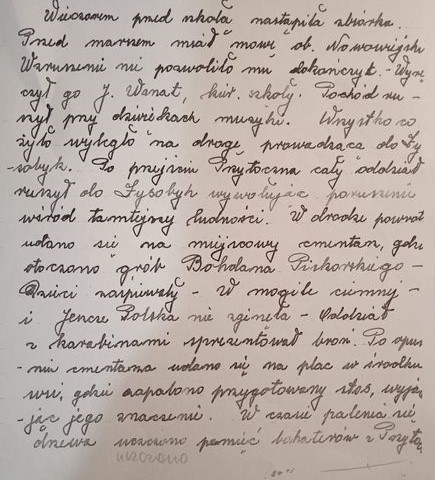 Wieczorem przed szkołą nastąpiła zbiórka.
Przed marszem miał mowę ob. Nowowiejski
Wzruszenie nie pozwoliło mu dokończyć. - Wyrę
czył go J. Wznat, kier. szkoły. Pochód ru -
szył przy dźwiękach muzyki. Wszystko co
żyło wyległo na drogę prowadzącą do Ły
-sobyk. Po przejściu Przytoczna cały oddział
ruszył do Łysobyk wywołując poruszenie
wśród tamtejszej ludności. W drodze powrot
udano się na miejscowy cmentarz, gdzie
otoczono grób Bohdana Piskorskiego -
Dzieci zaśpiewały - W mogile ciemnej -
i Jeszcze Polska nie zginęła - Oddział
z karabinami sprezentował broń. Po opusz
- niu cmentarza udano się na plac w środku
wsi, gdzie zapalono przygotowany stos, wyja
- jąc jego znaczenie. W czasie palenia się
drzewa uczczono pamięć bohaterów z Przyto
uczczono